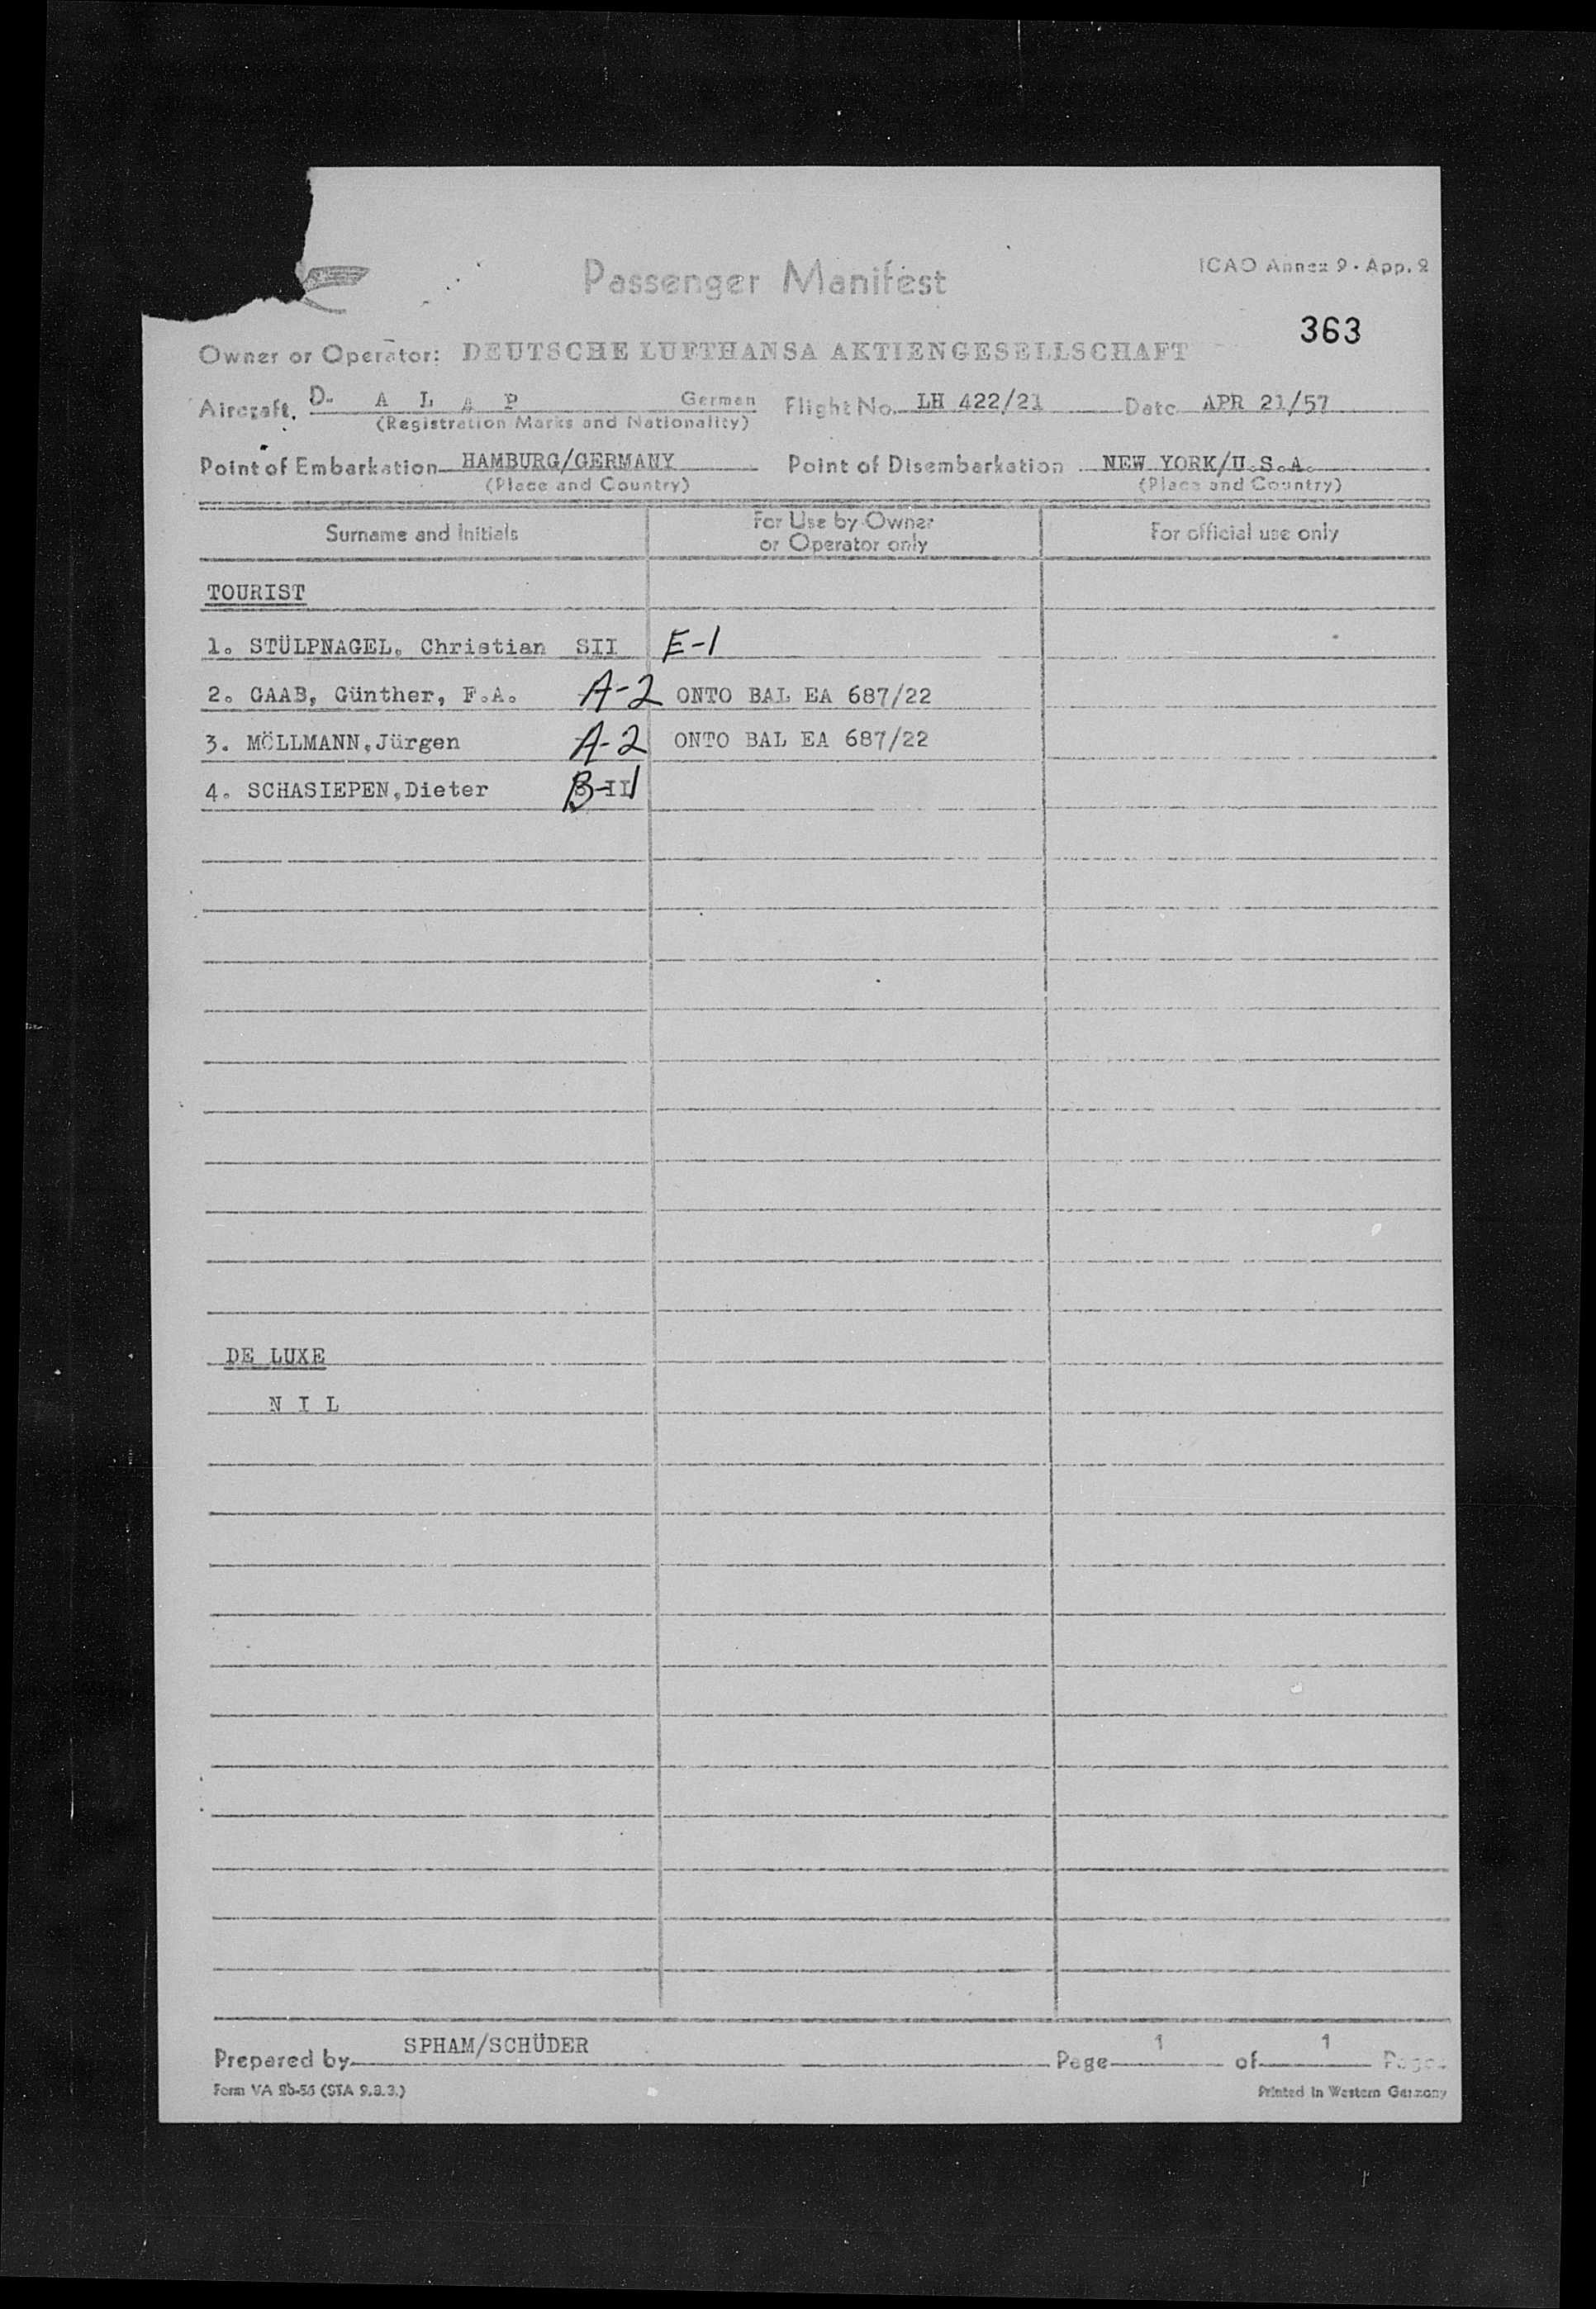 Passenger Manifest
ICAO Annex 9 · App. 2
363
Owner or Operator: DEUTSCHE LUFTHANSA AKTIENGESELLSCHAFT
Aircraft. D- A L A P German Flight No. LH 422/21 Date APR 21/57
(Registration Marks and Nationality)
Point of Embarkation HAMBURG/GERMANY Point of Disembarkation NEW YORK/U.S.A.
(Place and Country) (Place and Country)
Surname and Initials For Use by Owner or Operator only For official use only
TOURIST
1. STÜLPNAGEL, Christian SII E-1
2. GAAB, Günther, F.A. A-2 ONTO BAL EA 687/22
3. MÖLLMANN,Jürgen A-2 ONTO BAL EA 687/22
4. SCHASIEPEN,Dieter B-1
DE LUXE
N I L
SPHAM/SCHÜDER
Prepared by Page 1 of 1 Pages
Form VA 2b-56 (STA 9.3.3.) Printed in Western Germany